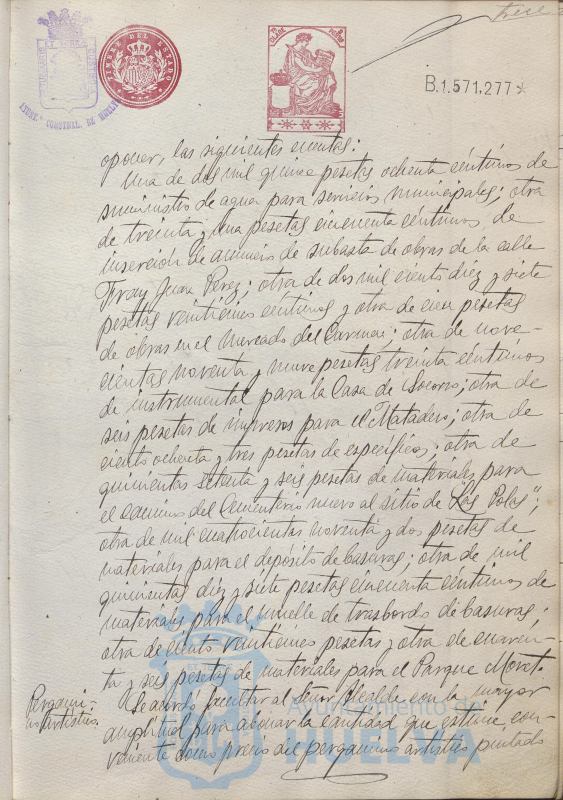 trece
TIMBRE DEL ESTADO
8ª CLASE
B.1.571,277*
AYUNTº CONSTNAL. DE HUELVA
oponer, las siguientes cuentas:
Una de dos mil quince pesetas ochenta céntimos de
suministro de agua para servicios municipales; otra
de treinta y una pesetas cincuenta céntimos de
inserción de anuncio de subasta de obras de la calle
Fray Juan Perez; otra de dos mil ciento diez y siete
pesetas veintiunos céntimos y otra de cien pesetas
de obras en el Mercado del Carmen; otra de nove-
cientas noventa y nueve pesetas treinta céntimos
de instrumental para la Casa de Socorro; otra de
seis pesetas de impresos para el Matadero; otra de
ciento ochenta y tres pesetas de específicos; otra de
quinientas setenta y seis pesetas de materiales para
el camino del Cementerio nuevo al sitio de "Las Polas";
otra de mil cuatrocientas noventa y dos pesetas de
materiales para el depósito de basuras; otra de mil
quinientas diez y siete pesetas cincuenta céntimos de
materiales para el muelle de trasbordo de basuras;
otra de ciento pesetas y otra de cuaren-
ta y seis pesetas de materiales para el Parque Moret.
Pergami-
no artístico.
Se acordó facultar al Señor Alcalde con la mayor
amplitud para abonar la cantidad que estime con-
veniente como precio del pergamino artístico pintado
Ayuntamiento de
HUELVA